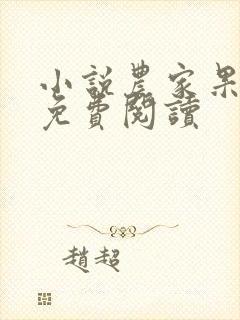 小說農家果
免費閱讀
趙超